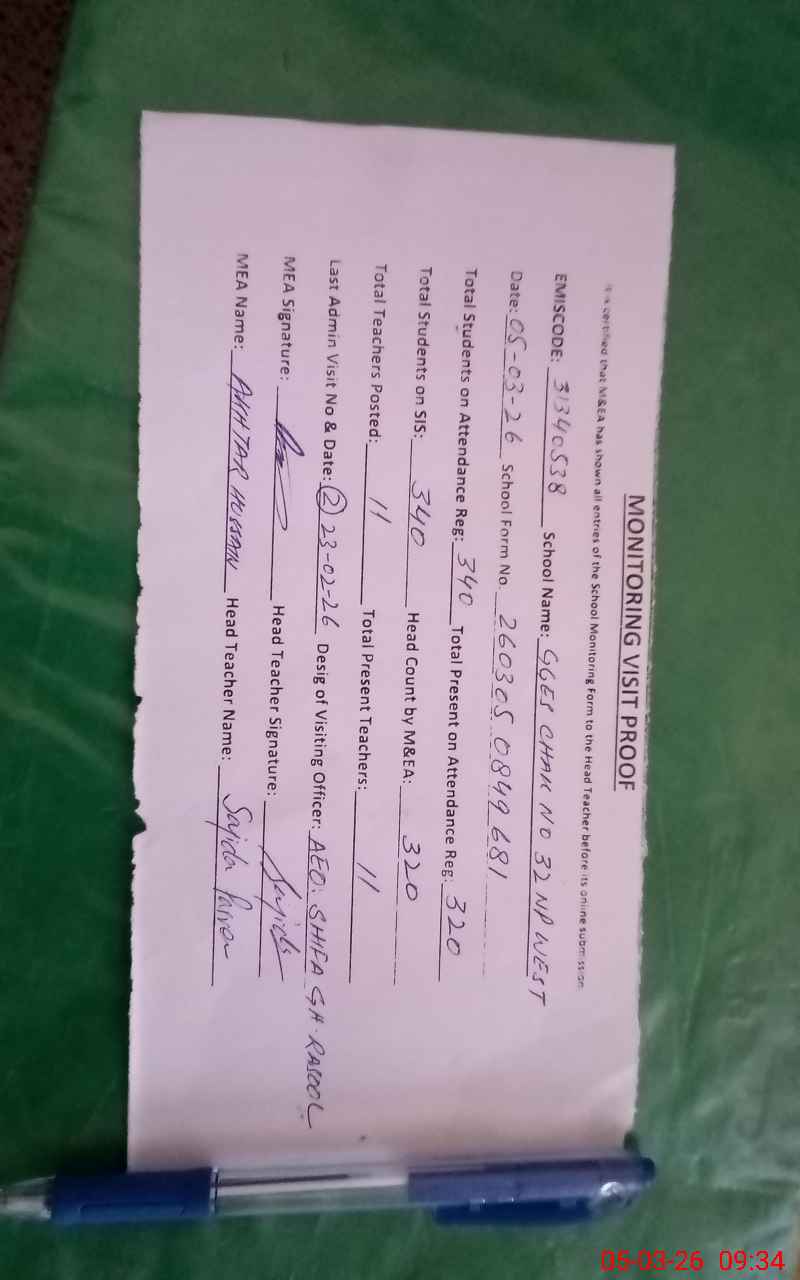 MONITORING VISIT PROOF
It is certified that M&EA has shown all entries of the School Monitoring Form to the Head Teacher before its online submission
EMISCODE: 31340538 School Name: GGES CHAK NO 32 NP WEST
Date: 05-03-26 School Form No. 260305 0849681
Total Students on Attendance Reg: 340 Total Present on Attendance Reg: 320
Total Students on SIS: 340 Head Count by M&EA: 320
Total Teachers Posted: 11 Total Present Teachers: 11
Last Admin Visit No & Date: (2) 23-02-26 Desig of Visiting Officer: AEO: SHIFA GH. RASOOL
MEA Signature: Head Teacher Signature: Sajida
MEA Name: AKHTAR HUSSAIN Head Teacher Name: Sajida
05-03-26 09:34